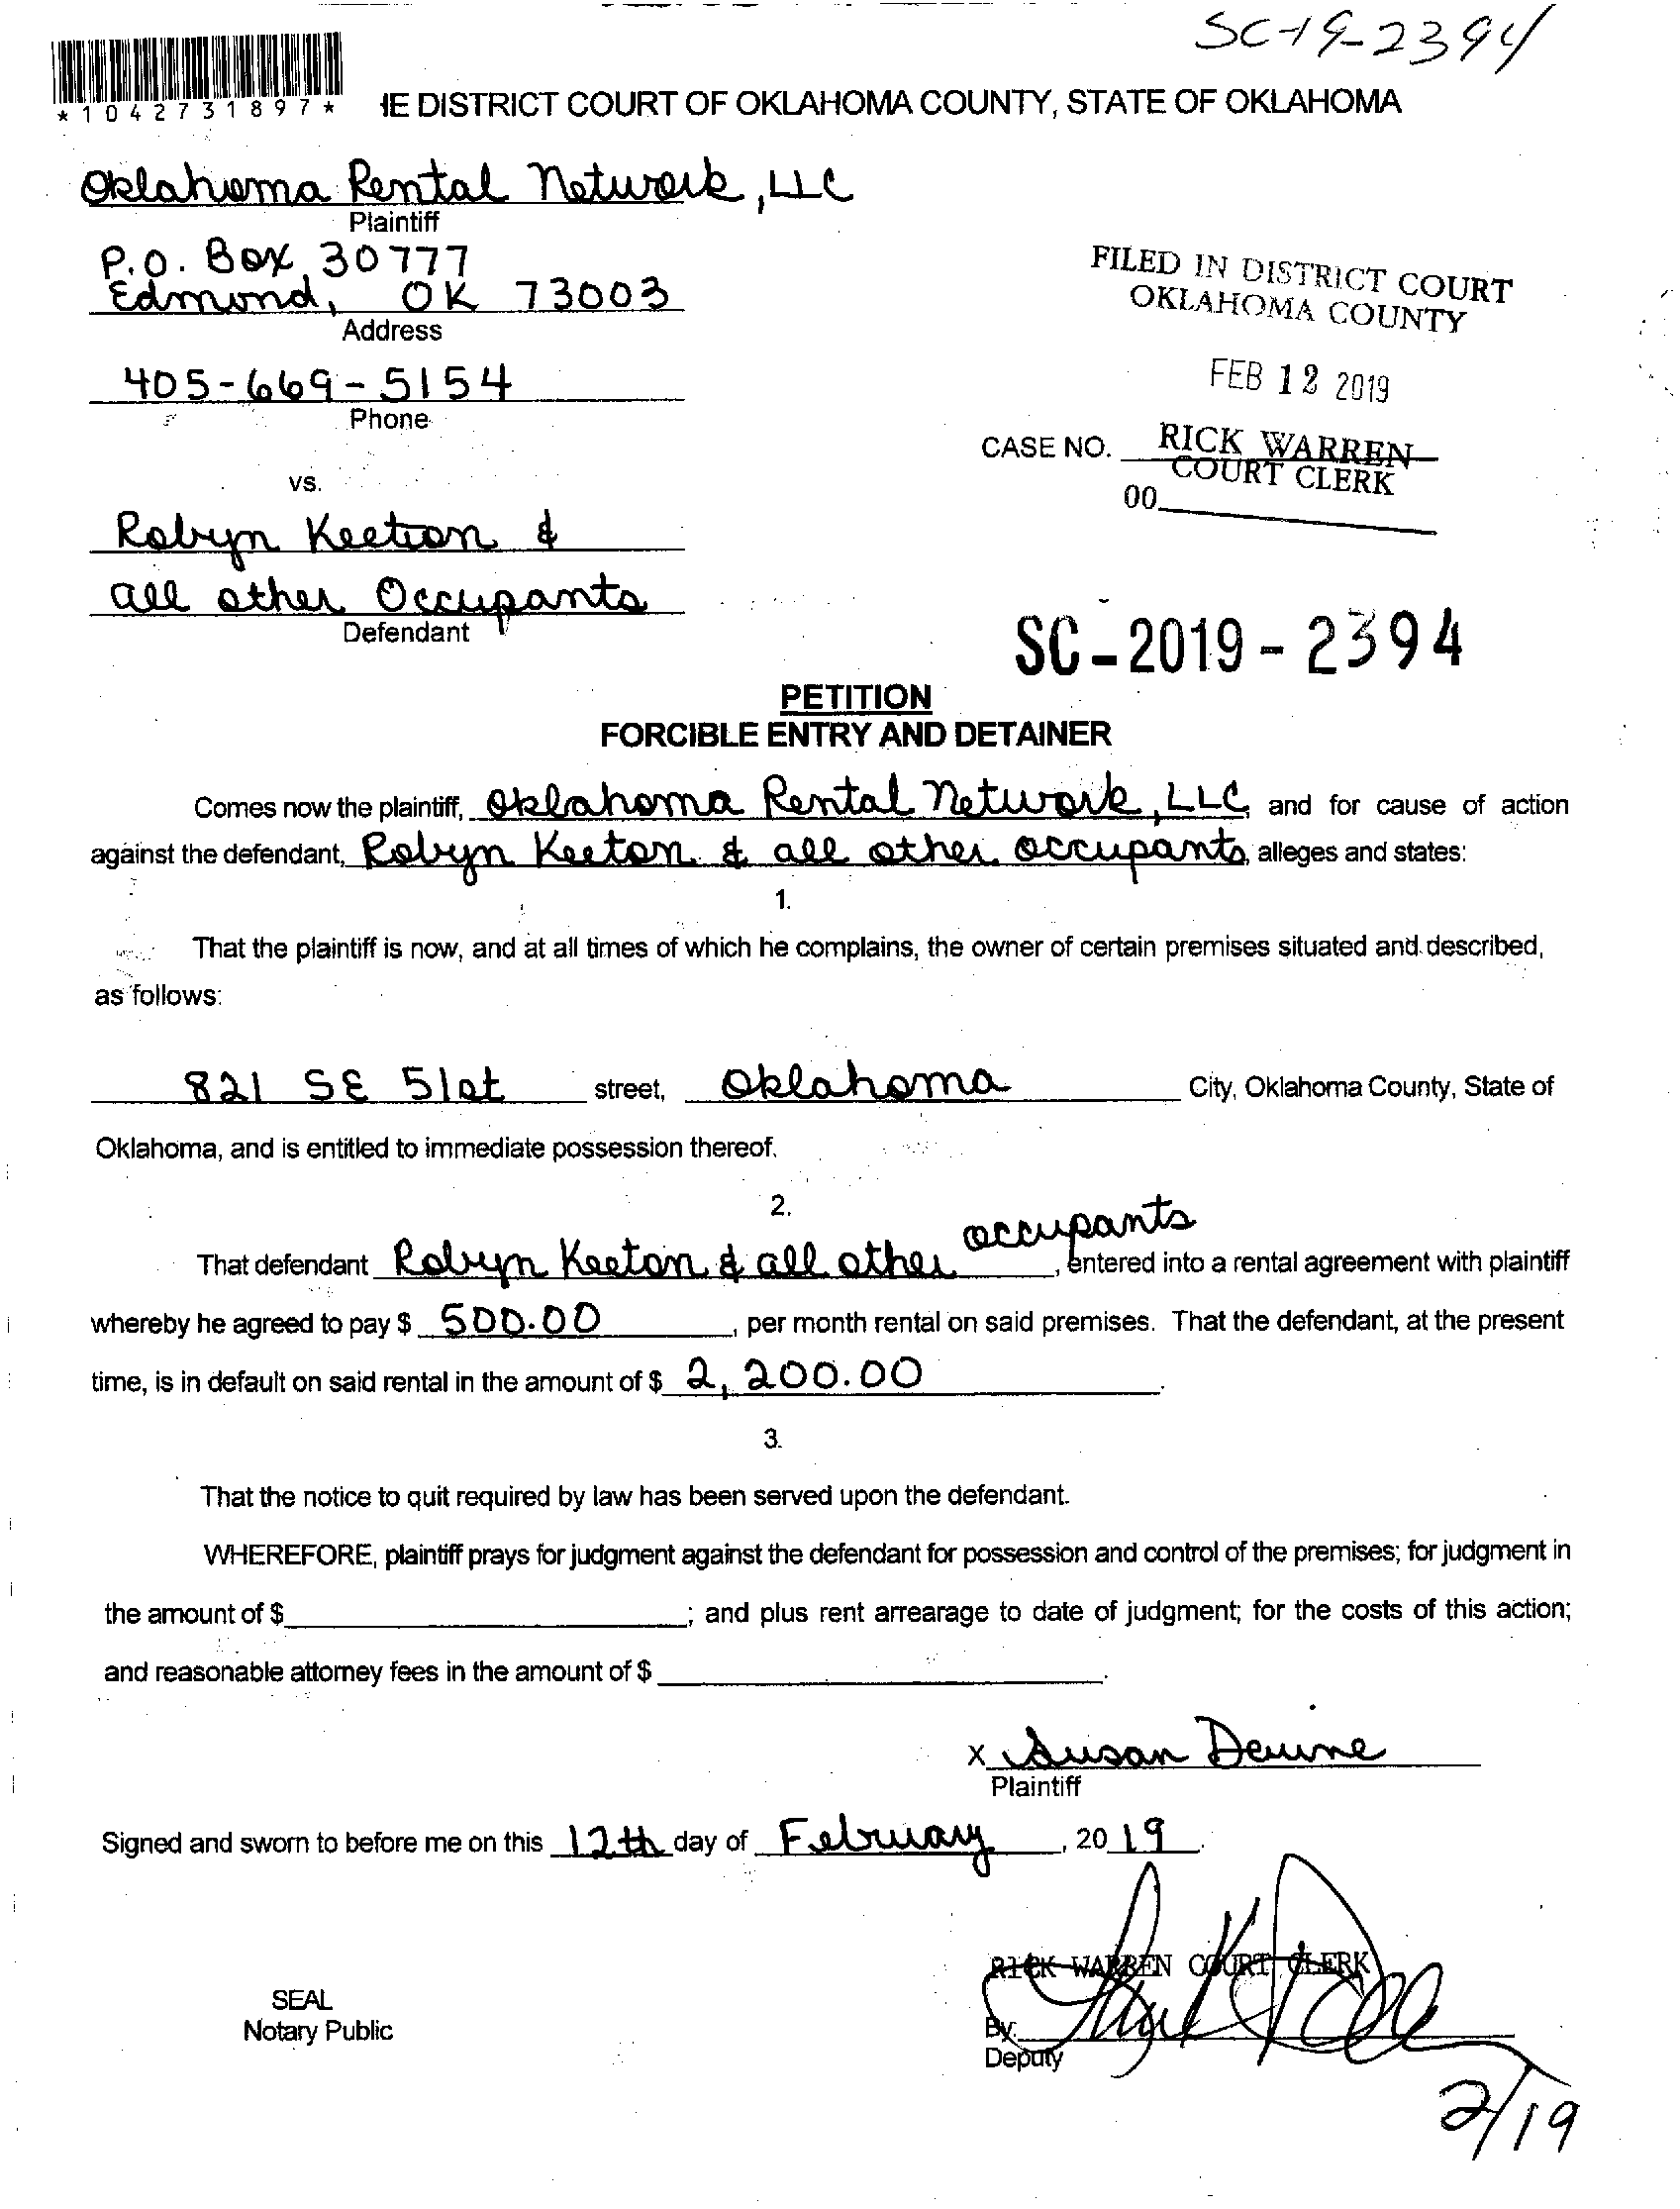 SC-19-2394
*1042731897*
IE DISTRICT COURT OF OKLAHOMA COUNTY, STATE OF OKLAHOMA
Oklahoma Rental Network, LLC
Plaintiff
P.O. Box 30777
Edmond, OK 73003
Address
FILED IN DISTRICT COURT
OKLAHOMA COUNTY
405-669-5154
Phone
FEB 12 2019
CASE NO. RICK WARREN
COURT CLERK
00
vs.
Robyn Keeton &
all other Occupants
Defendant
SC-2019-2394
PETITION
FORCIBLE ENTRY AND DETAINER
Comes now the plaintiff, Oklahoma Rental Network, LLC, and for cause of action
against the defendant, Robyn Keeton & all other occupants, alleges and states:
1.
That the plaintiff is now, and at all times of which he complains, the owner of certain premises situated and described,
as follows:
821 SE 51st street, Oklahoma City, Oklahoma County, State of
Oklahoma, and is entitled to immediate possession thereof.
2.
That defendant Robyn Keeton & all other occupants, entered into a rental agreement with plaintiff
whereby he agreed to pay $ 500.00, per month rental on said premises. That the defendant, at the present
time, is in default on said rental in the amount of $ 2,200.00.
3.
That the notice to quit required by law has been served upon the defendant.
WHEREFORE, plaintiff prays for judgment against the defendant for possession and control of the premises; for judgment in
the amount of $ ; and plus rent arrearage to date of judgment; for the costs of this action;
and reasonable attorney fees in the amount of $ .
x Susan Devine
Plaintiff
Signed and sworn to before me on this 12th day of February, 2019.
RICK WARREN COURT CLERK
SEAL
Notary Public
By:
Deputy
2/19